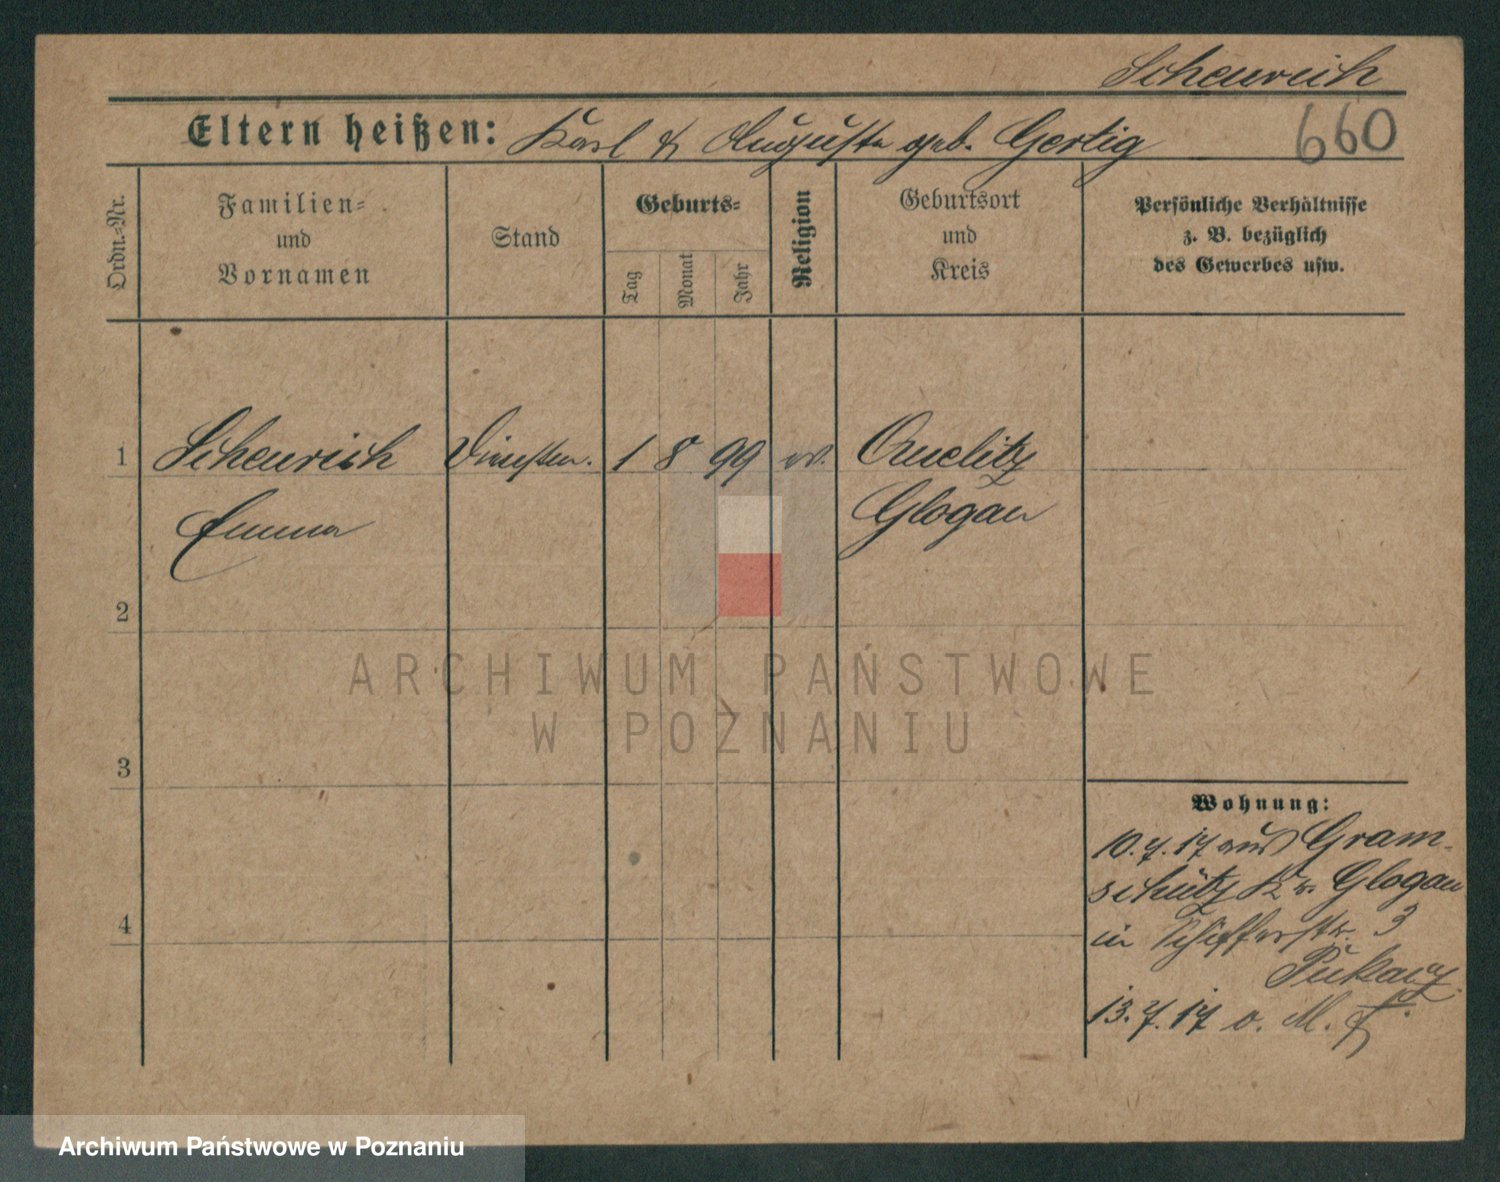 Scheurich
Eltern heißen: Karl & Auguste geb. Gertig
660
Ordn.-Nr.
Familien- und Vornamen
Stand
Geburts-
Tag
Monat
Jahr
Religion
Geburtsort und Kreis
Persönliche Verhältnisse
z. B. bezüglich
des Gewerbes usw.
1 Scheurich Dienstm. 1 8 99 ev.
Emma Glogau
2
3
4
Wohnung:
10.7.17 aus Gram-
schütz Kr. Glogau
in Schifferstr. 3
13.7.17 o. M.
ARCHIWUM PAŃSTWOWE
W POZNANIU
Archiwum Państwowe w Poznaniu